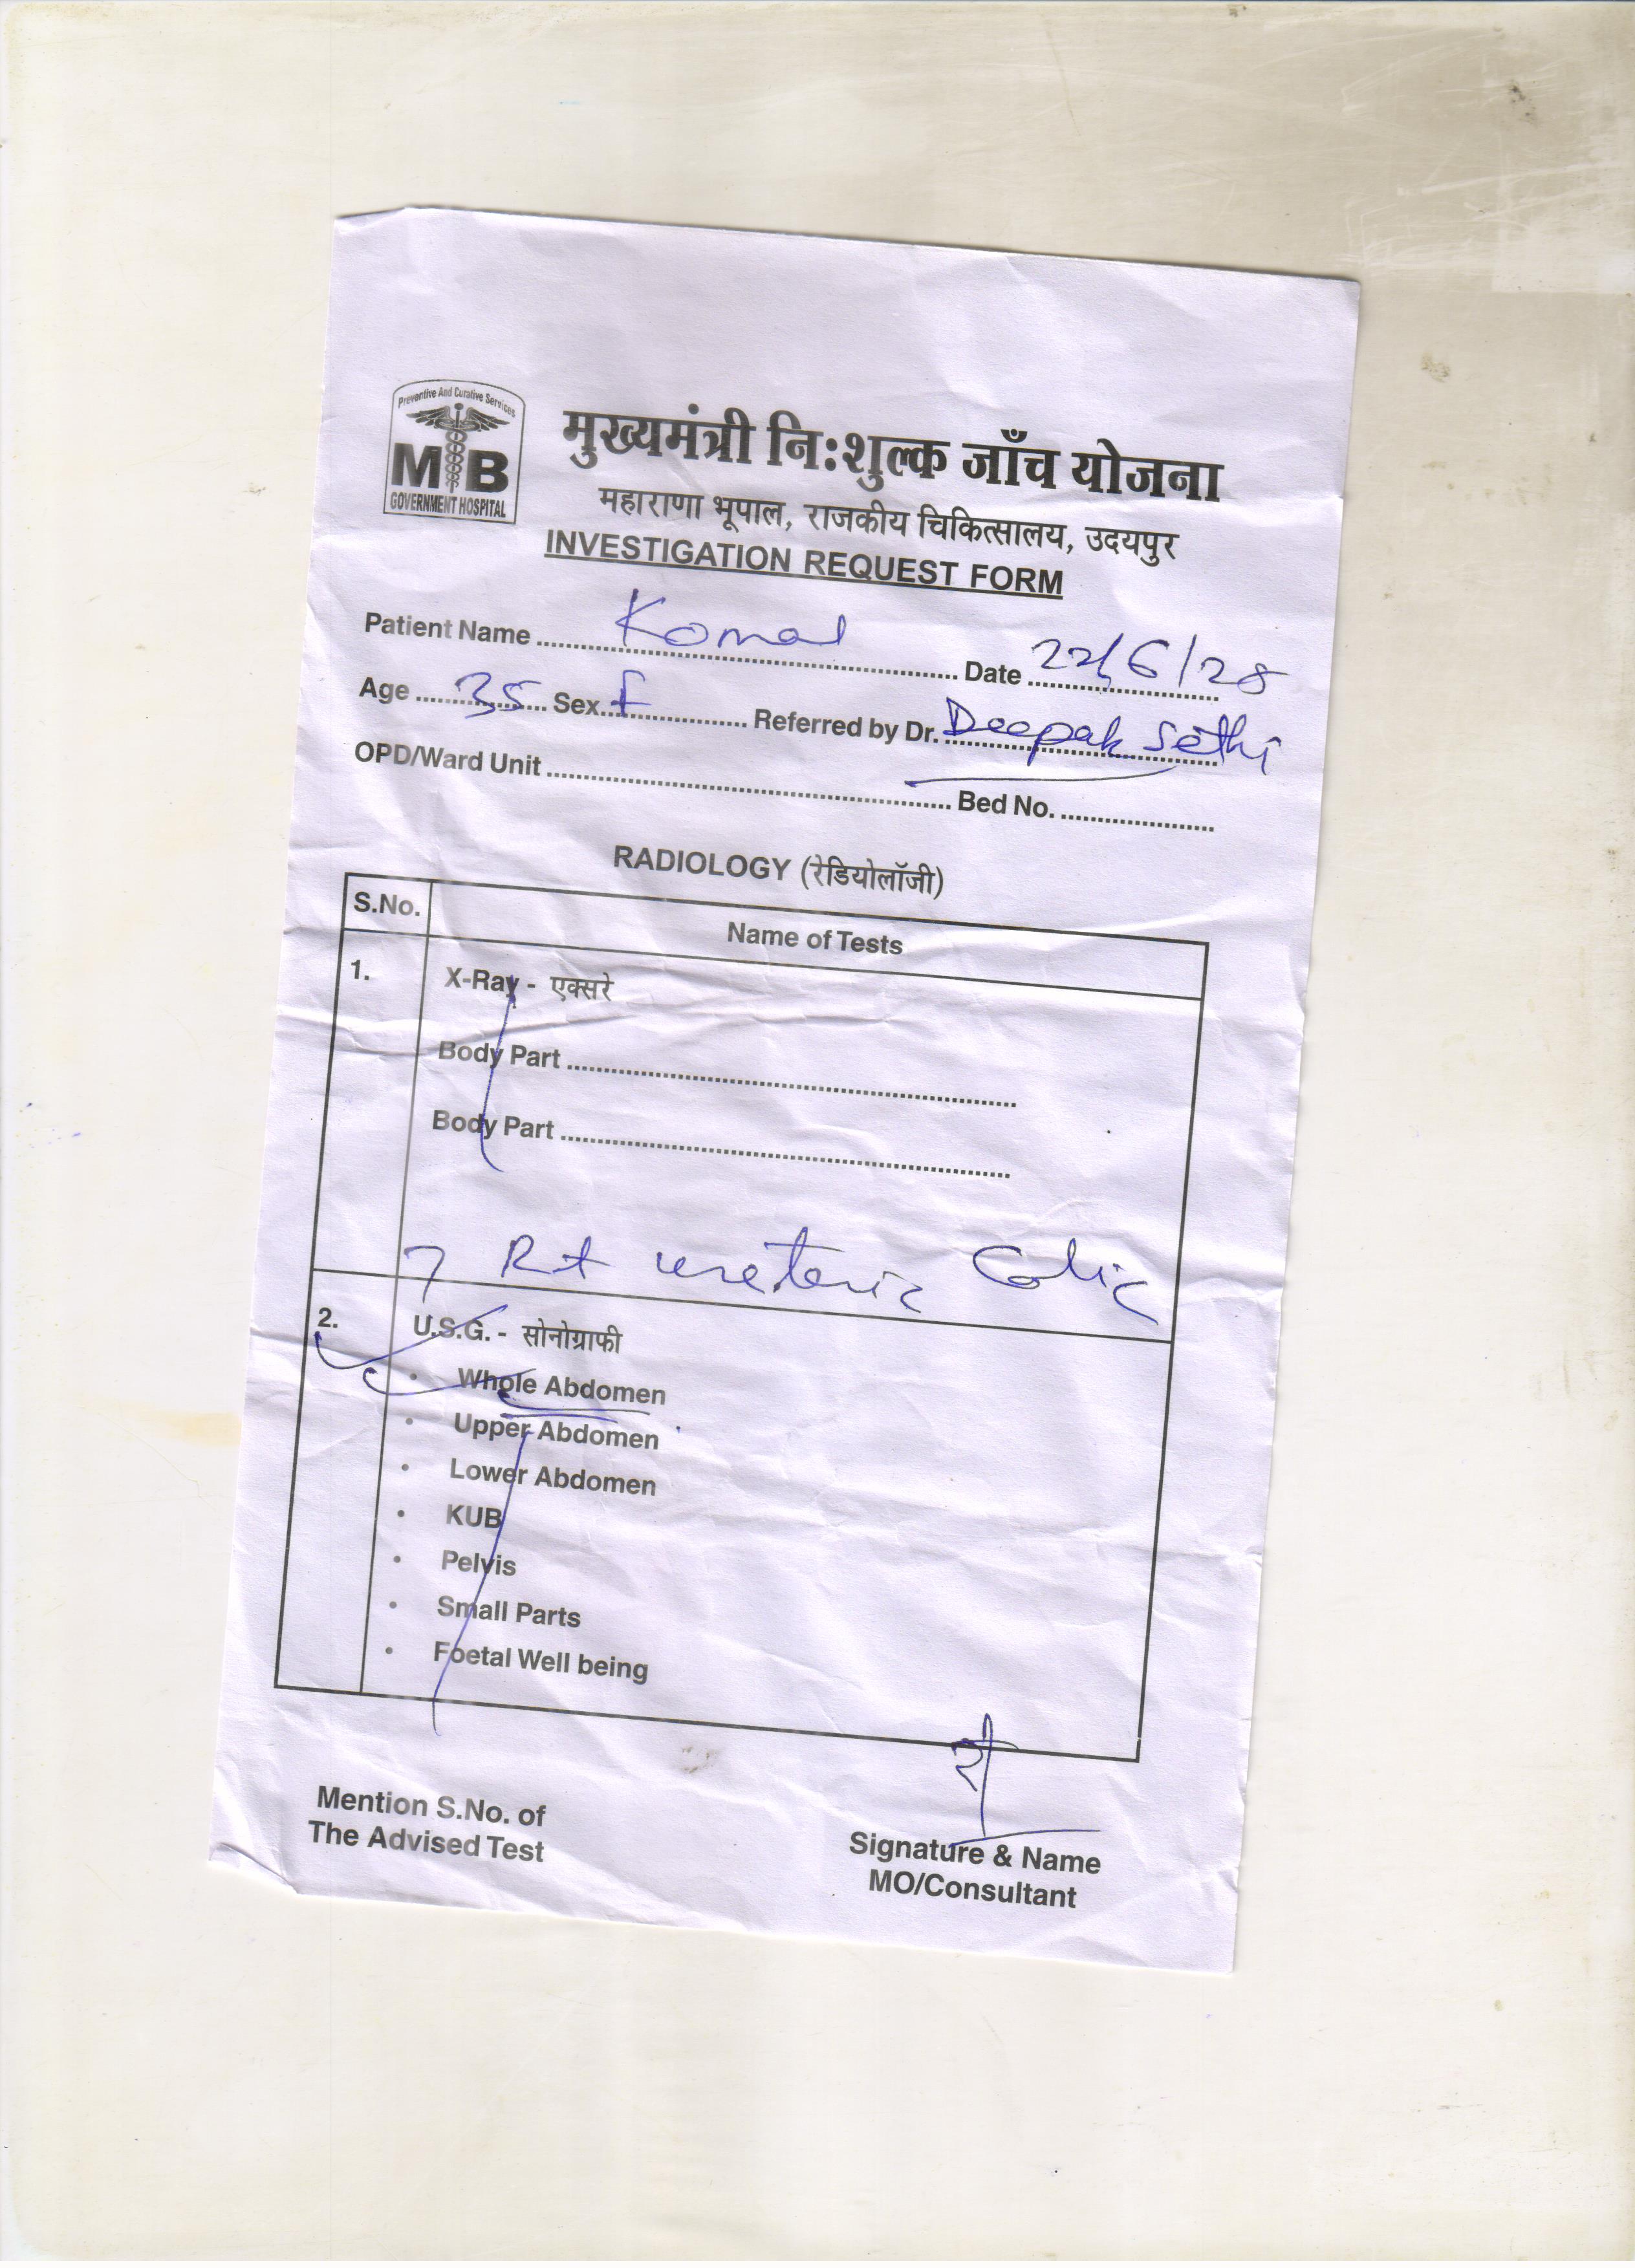 Preventive And Curative Services
MB
GOVERNMENT HOSPITAL
मुख्यमंत्री निःशुल्क जाँच योजना
महाराणा भूपाल, राजकीय चिकित्सालय, उदयपुर
INVESTIGATION REQUEST FORM
Patient Name Komal Date 22/6/28
Age 35 Sex F Referred by Dr. Deepak Sethi
OPD/Ward Unit Bed No.
RADIOLOGY (रेडियोलॉजी)
S.No. Name of Tests
1. X-Ray - एक्सरे
Body Part
Body Part
? Rt ureteric Colic
2. U.S.G. - सोनोग्राफी
• Whole Abdomen
• Upper Abdomen
• Lower Abdomen
• KUB
• Pelvis
• Small Parts
• Foetal Well being
Mention S.No. of
The Advised Test
Signature & Name
MO/Consultant